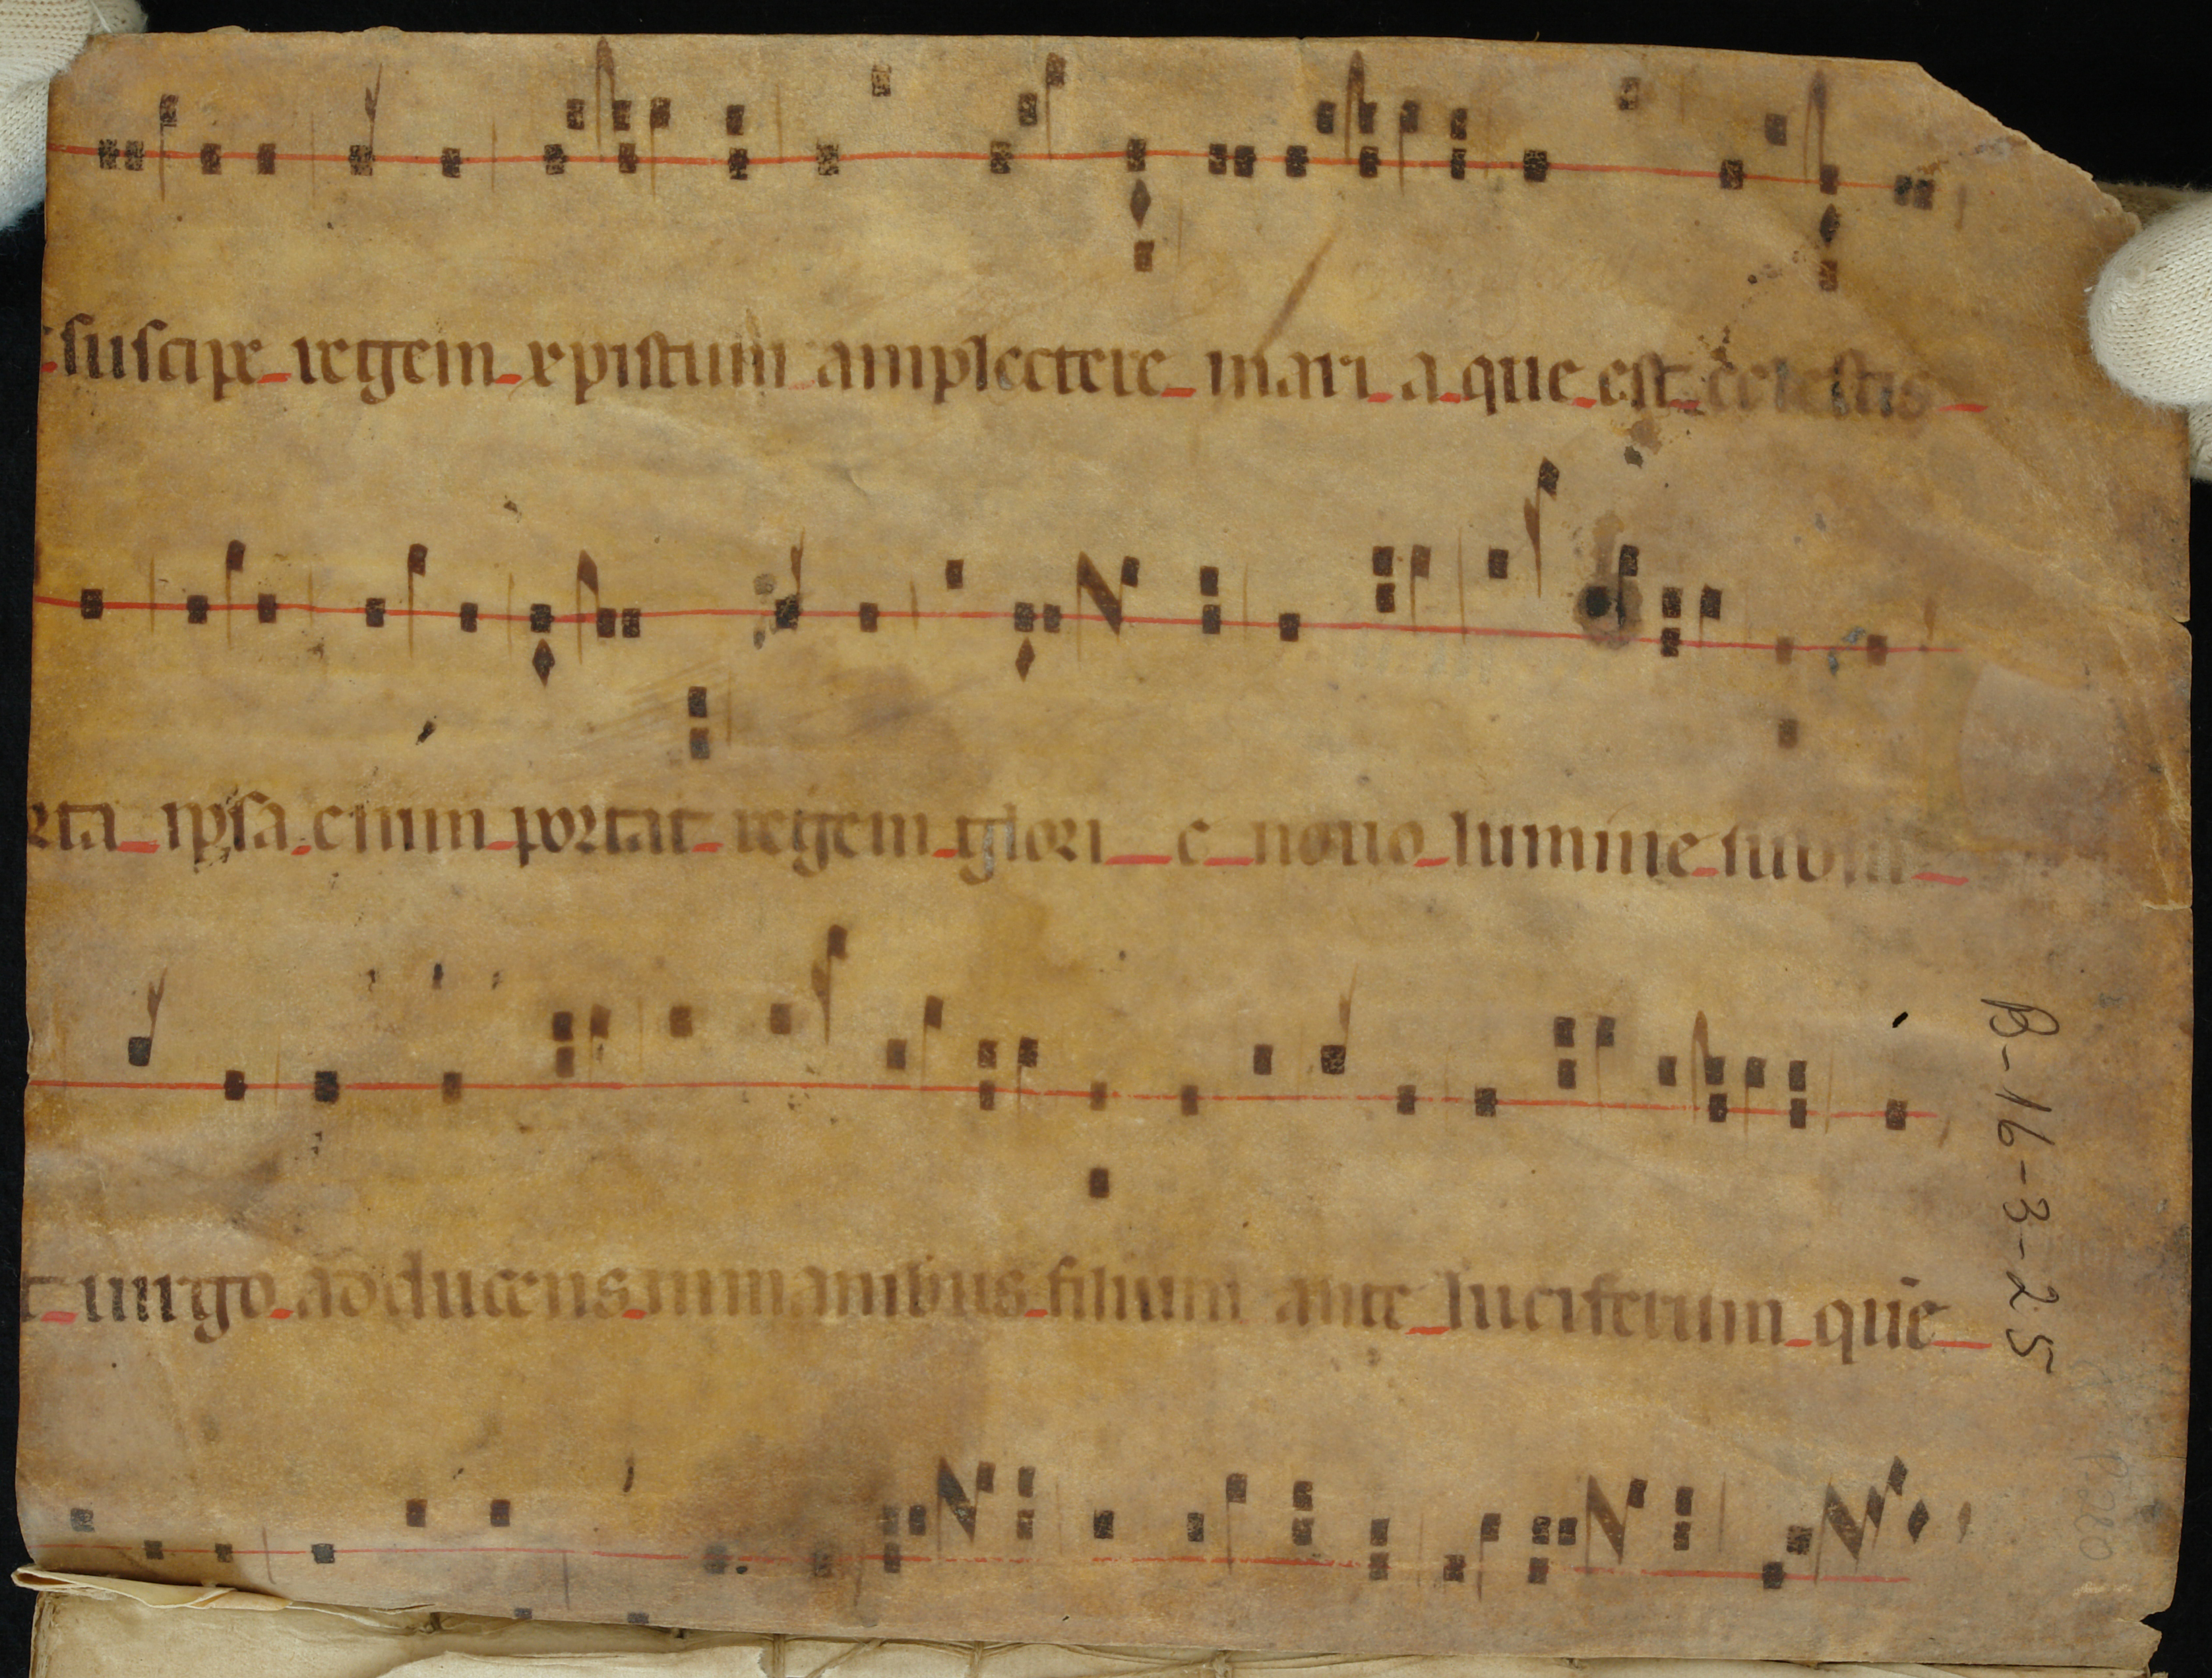 suscipe regem xpistum amplectere mari a que est celestis
rta ipsa enim portat regem glori e nouo lumine
t uirgo adducens inmanibus filium ante luciferum quē
B-16-3-25